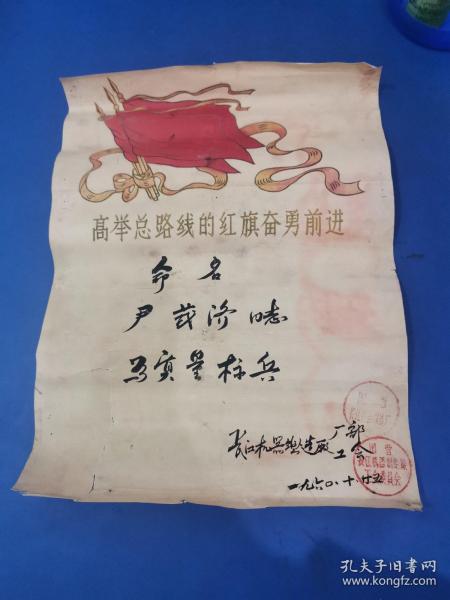 高举总路线的红旗奋勇前进
命名
尹莪济同志
为质量标兵
长江机器制造厂
厂部
工会
国营
一九六〇·十·廿五
孔夫子旧书网
www.kongfz.com